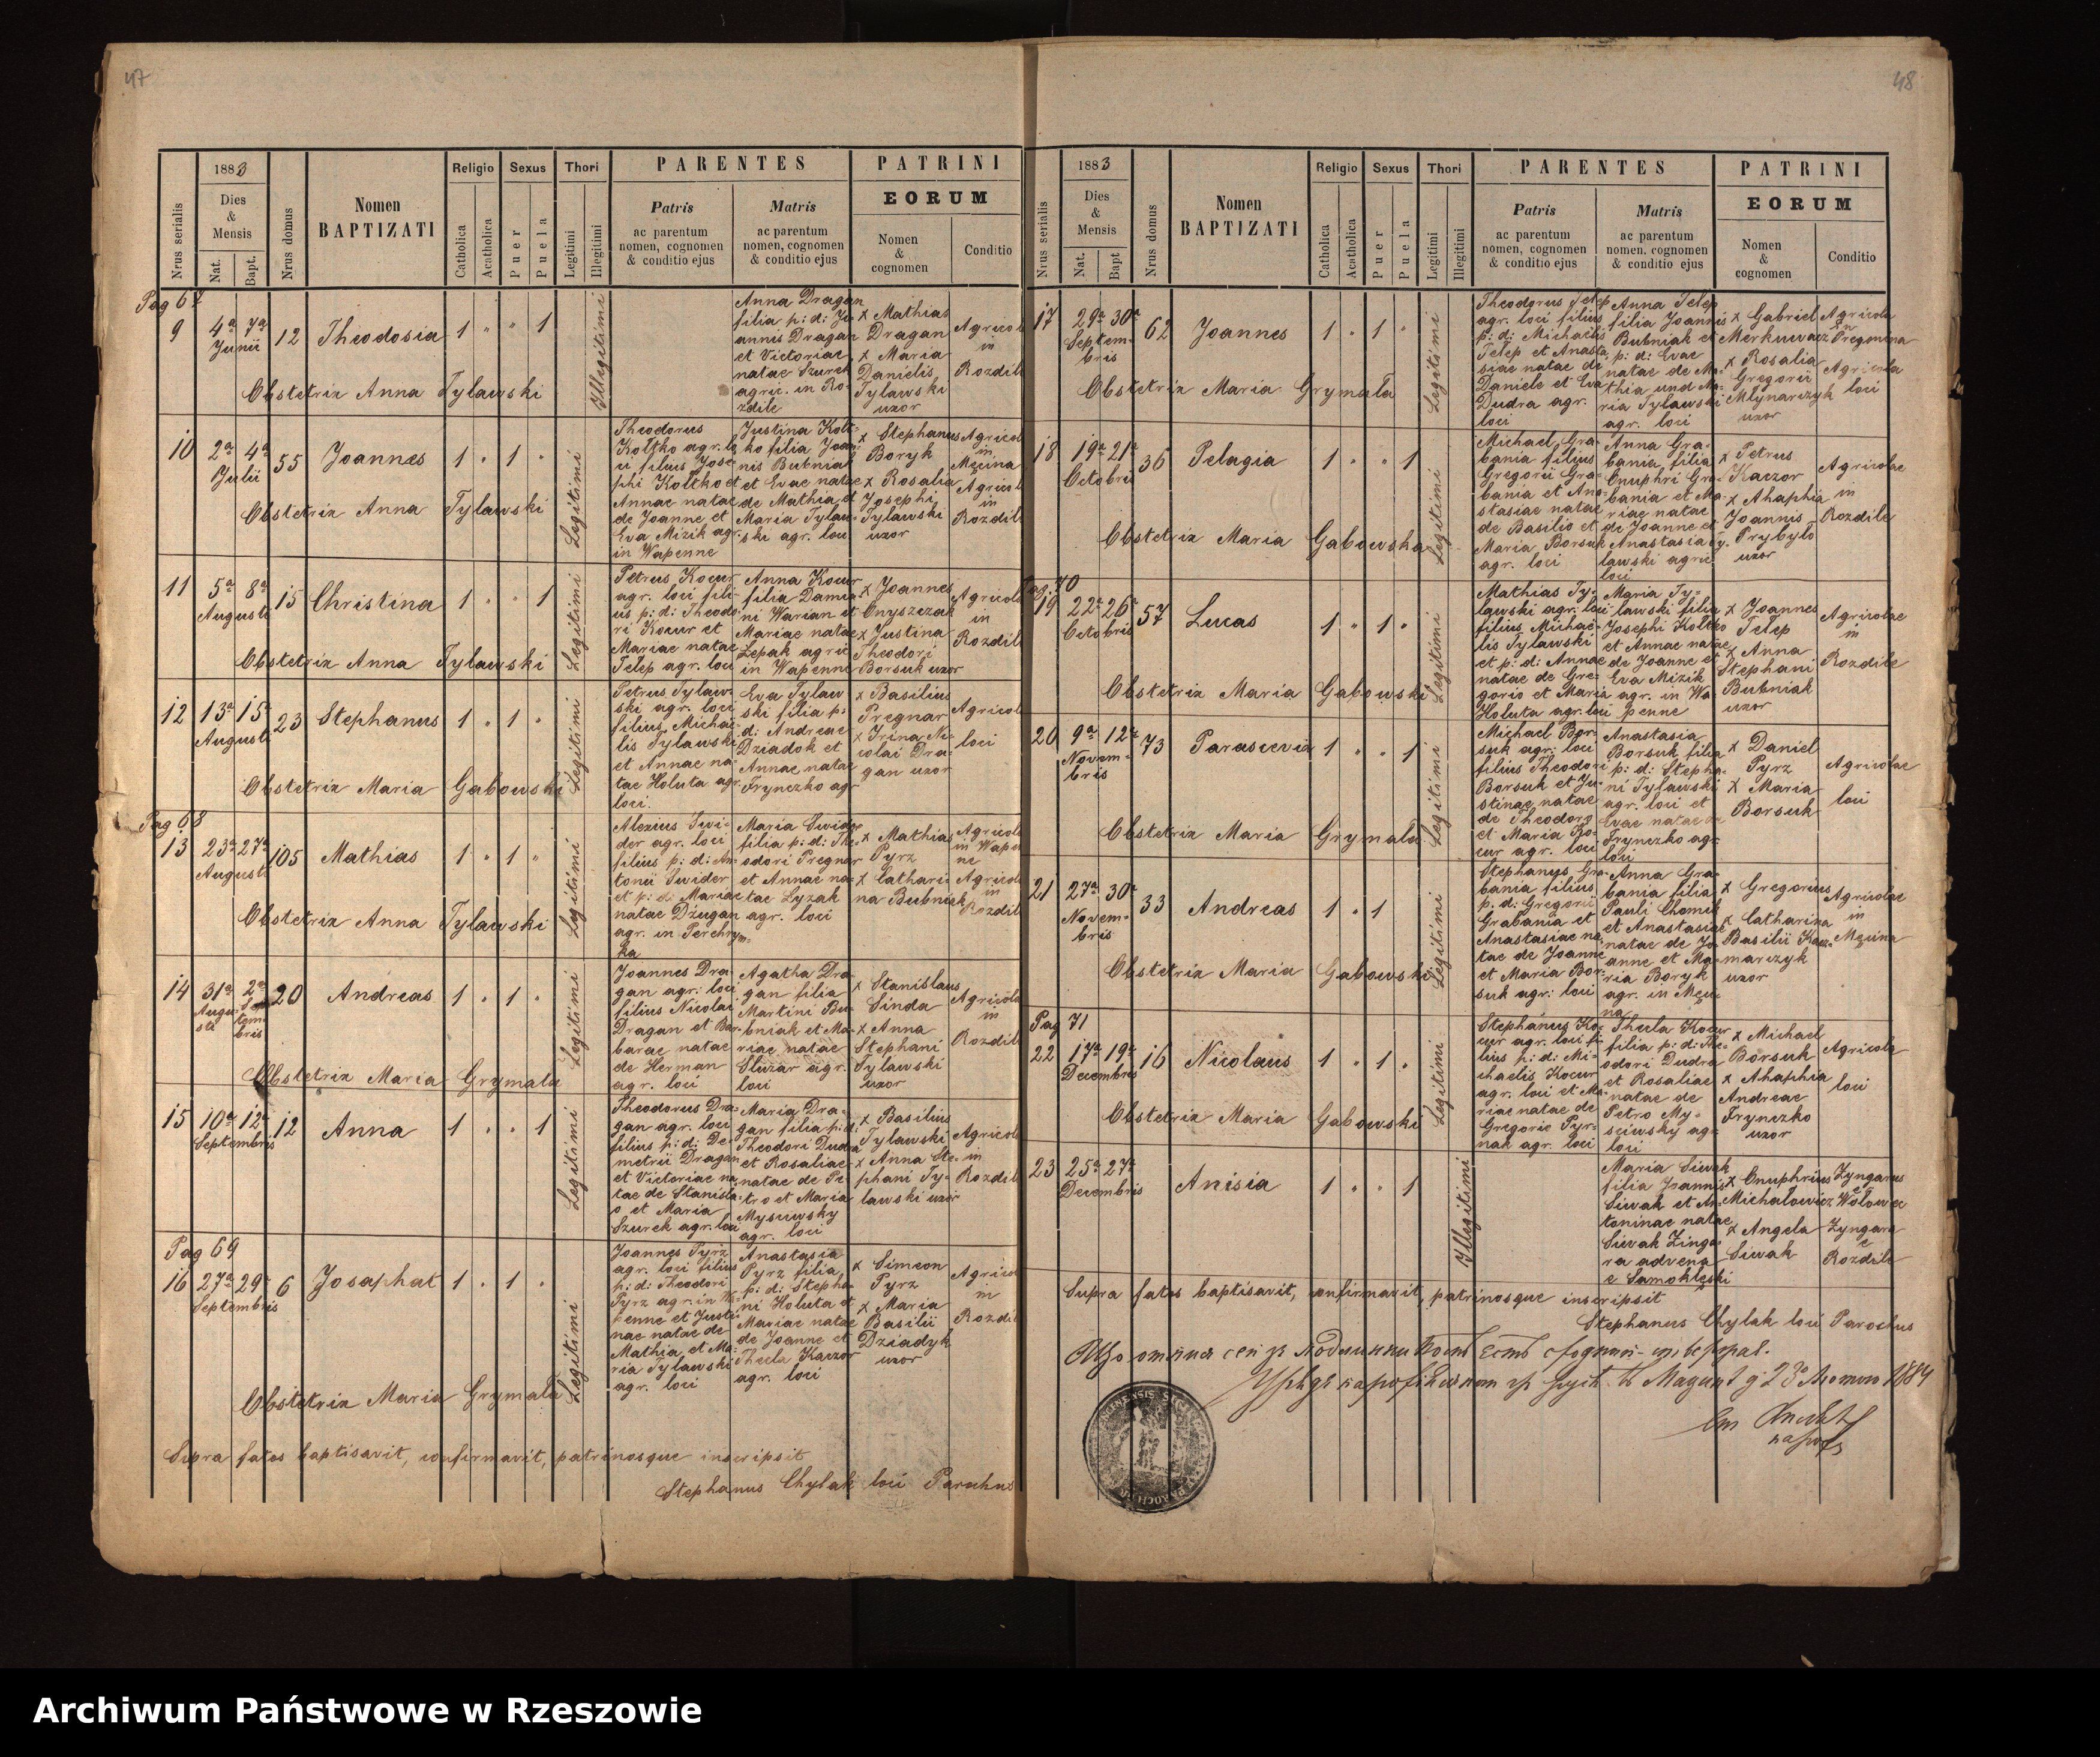 47
1883
Nrus serialis
Dies & Mensis
Nat.
Bapt.
Nrus domus
Nomen BAPTIZATI
Religio
Catholica
Acatholica
Sexus
Puer
Puela
Thori
Legitimi
Illegitimi
PARENTES
Patris
ac parentum nomen, cognomen & conditio ejus
Matris
ac parentum nomen, cognomen & conditio ejus
PATRINI
EORUM
Nomen & cognomen
Conditio
Pag 67
9 4a 7a Junii 12 Theodosia 1 " " 1 Illegitimi
Anna Dragan
filia p: d: Jo
annis Dragan
et Victoriae
natae Szurek
agric. in Ro-
zdile
x Mathias
Dragan
x Maria
Danielis
Tylawski
uxor
Agricol
in
Rozdile
Obstetrix Anna Tylawski
10 2a 4a Julii 55 Joannes 1 " 1 " Legitimi
Theodorus
Koltko agr. lo
ci filius Jose-
phi Koltko et
Annae natae
de Joanne et
Eva Mizik agr.
in Wapenne
Justina Kolt-
ko filia Joan-
nis Bubniak
et Evae natae
de Mathia et
Maria Tylaw-
ski agr. loci
x Stephanus
Boryk
x Rosalia
Josephi
Tylawski
uxor
Agricol
in
Męcina
Agricol
in
Rozdile
Obstetrix Anna Tylawski
11 5a 8a Augusti 15 Christina 1 " " 1 Legitimi
Petrus Kocur
agr. loci fili-
us p: d: Theodo-
ri Kocur et
Mariae natae
Telep agr. loci
Anna Kocur
filia Damia-
ni Warian et
Mariae natae
Lepak agric
in Wapenne
x Joannes
Onyszczak
x Justina
Theodori
Borsuk uxor
Agricol
in
Rozdil
Obstetrix Anna Tylawski
12 13a 15a Augusti 23 Stephanus 1 " 1 " Legitimi
Petrus Tylaw-
ski agr. loci
filius Michae-
lis Tylawski
et Annae na-
tae Holuta agr
loci.
Eva Tylaw
ski filia p:
d: Andreae
Dziadok et
Annae natae
Frynczko agr
x Basilius
Pregnar
x Irina Ni-
colai Dra-
gan uxor
Agricol
loci
Obstetrix Maria Gabowski
Pag 68
13 23a 27a Augusti 105 Mathias 1 " 1 " Legitimi
Alexius Swi-
der agr. loci
filius p: d: An-
tonii Swider
et p: d: Mariae
natae Dżugan
agr. in Perehrym-
ka
Maria Swider
filia p: d: The-
odori Pregnar
et Annae na-
tae Lyzak
agr. loci
x Mathias
Pyrz
x Cathari-
na Bubniak
Agricol
in Wapen
ne
Agricol
in
Rozdil
Obstetrix Anna Tylawski
14 31a Augu-sti 2a Sep-tem-bris 20 Andreas 1 " 1 " Legitimi
Joannes Dra-
gan agr: loci
filius Nicolai
Dragan et Bar-
barae natae
de Herman
agr. loci
Agatha Dra
gan filia
Martini Bu-
bniak et Ma-
riae natae
Sluzar agr.
loci
x Stanislaus
Sinda
x Anna
Stephani
Tylawski
uxor
Agricola
in
Rozdil
Obstetrix Maria Grymala
15 10a 12a Septembris 12 Anna 1 " " 1 Legitimi
Theodorus Dra-
gan agr. loci
filius p: d: De-
metrii Dragan
et Victoriae na-
tae de Stanisla-
o et Maria
Szurek agr. loci
Maria Dra-
gan filia p: d:
Theodori Dudra
et Rosaliae
natae de Pe-
tro et Maria
Mysciwsky
agr. loci
x Basilius
Tylawski
x Anna Ste-
phani Ty-
lawski uxor
Agricol
in
Rozdil
Pag 69
16 27a 29a Septembris 6 Josaphat 1 " 1 " Legitimi
Joannes Pyrz
agr. loci filius
p: d: Theodori
Pyrz agr. in Wa-
penne et Justi-
nae natae de
Mathia et Ma-
ria Tylawski
agr. loci
Anastasia
Pyrz filia
p: d: Stepha-
ni Holuta et
Mariae natae
de Joanne et
Thecla Kaczor
agr. loci
x Simeon
Pyrz
x Maria
Basilii
Dziadyk
uxor
Agricol
in
Rozdil
Obstetrix Maria Grymala
Supra fatos baptisavit, confirmavit, patrinosque inscripsit
Stephanus Chylak loci Parochus
48
1883
Nrus serialis
Dies & Mensis
Nat.
Bapt
Nrus domus
Nomen BAPTIZATI
Religio
Catholica
Acatholica
Sexus
Puer
Puela
Thori
Legitimi
Illegitimi
PARENTES
Patris
ac parentum nomen, cognomen & conditio ejus
Matris
ac parentum nomen, cognomen & conditio ejus
PATRINI
EORUM
Nomen & cognomen
Conditio
17 29a 30a Septem-bris 62 Joannes 1 " 1 " Legitimi
Theodorus Telep
agr. loci filius
p: d: Michaelis
Telep et Anasta
siae natae de
Daniele et Eva
Dudra agr.
loci
Anna Telep
filia Joannis
Bubniak et
p: d: Evae
natae de Ma-
thia und Ma-
ria Tylawski
agr. loci
x Gabriel
Merkuwacz
x Rosalia
Gregorii
Mlynarczyk
uxor
Agricola
in
Pregonina
Agricola
loci
Obstetrix Maria Grymala
18 19a 21a Octobris 36 Pelagia 1 " " 1 Legitimi
Michael Gra-
bania filius
Gregorii Gra-
bania et Ana-
stasiae natae
de Basilio et
Maria Borsuk
agr. loci
Anna Gra-
bania filia
Onuphri Gra-
bania et Ma-
riae natae
de Joanne et
Anastasia Ty-
lawski agric.
loci
x Petrus
Kaczor
x Ahaphia
Joannis
Prybylo
uxor
Agricolae
in
Rozdile
Obstetrix Maria Gabowska
Pag. 70
19 22a 26a Octobris 57 Lucas 1 " 1 " Legitimi
Mathias Ty-
lawski agr. loci
filius Michae-
lis Tylawski
et p: d: Annae
natae de Gre-
gorio et Maria
Holuta agr. loci
Maria Ty-
lawski filia
Josephi Koltko
et Annae natae
de Joanne et
Eva Mizik
agr. in Wa
penne
x Joannes
Telep
x Anna
Stephani
Bubniak
uxor
Agricolae
in
Rozdile
Obstetrix Maria Gabowski
20 9a 12a Novem-bris 73 Parascevia 1 " " 1 Legitimi
Michael Bor-
suk agr. loci
filius Theodori
Borsuk et Ju-
stinae natae
de Theodoro
et Maria Ko-
cur agr. loci
Anastasia
Borsuk filia
p: d: Stepha-
ni Tylawski
agr. loci et
Evae natae de
Frynczko agr.
loci
x Daniel
Pyrz
x Maria
Borsuk
Agricolae
loci
Obstetrix Maria Grymala
21 27a 30a Novem-bris 33 Andreas 1 " 1 Legitimi
Stephanus Gra-
bania filius
p: d: Gregorii
Grabania et
Anastasiae na-
tae de Joanne
et Maria Bor-
suk agr: loci
Anna Gra-
bania filia
Pauli Chomik
et Anastasiae
natae de Jo-
anne et Ma-
ria Boryk
agr. in Męci-
na
x Gregorius
x Catharina
Basilii Kacz-
marczyk
uxor
Agricolae
in
Męcina
Obstetrix Maria Gabowski
Pag 71
22 17a 19a Decembris 16 Nicolaus 1 " 1 " Legitimi
Stephanus Ko-
cur agr. loci fi-
lius p: d: Mi-
chaelis Kocur
agr. loci et Ma-
riae natae de
Gregorio Pyr-
nak agr. loci
Thecla Kocur
filia p: d: The-
odori Dudra
et Rosaliae
natae de
Petro My-
sciwsky agr
loci
x Michael
Borsuk
x Ahaphia
Andreae
Frynczko
uxor
Agricola
loci
Obstetrix Maria Gabowski
23 25a 27a Decembris Anisia 1 " " 1 Illegitimi
Maria Siwak
filia Joannis
Siwak et An-
toninae natae
Siwak Zinga-
ra advena
e Samoklęski
x Onuphrius
Michalowicz
x Angela
Siwak
Zyngarus
e
Wolowec
Zyngara
e
Rozdile
Supra fatos baptisavit, confirmavit, patrinosque inscripsit
Stephanus Chylak loci Parochus
1884
Archiwum Państwowe w Rzeszowie